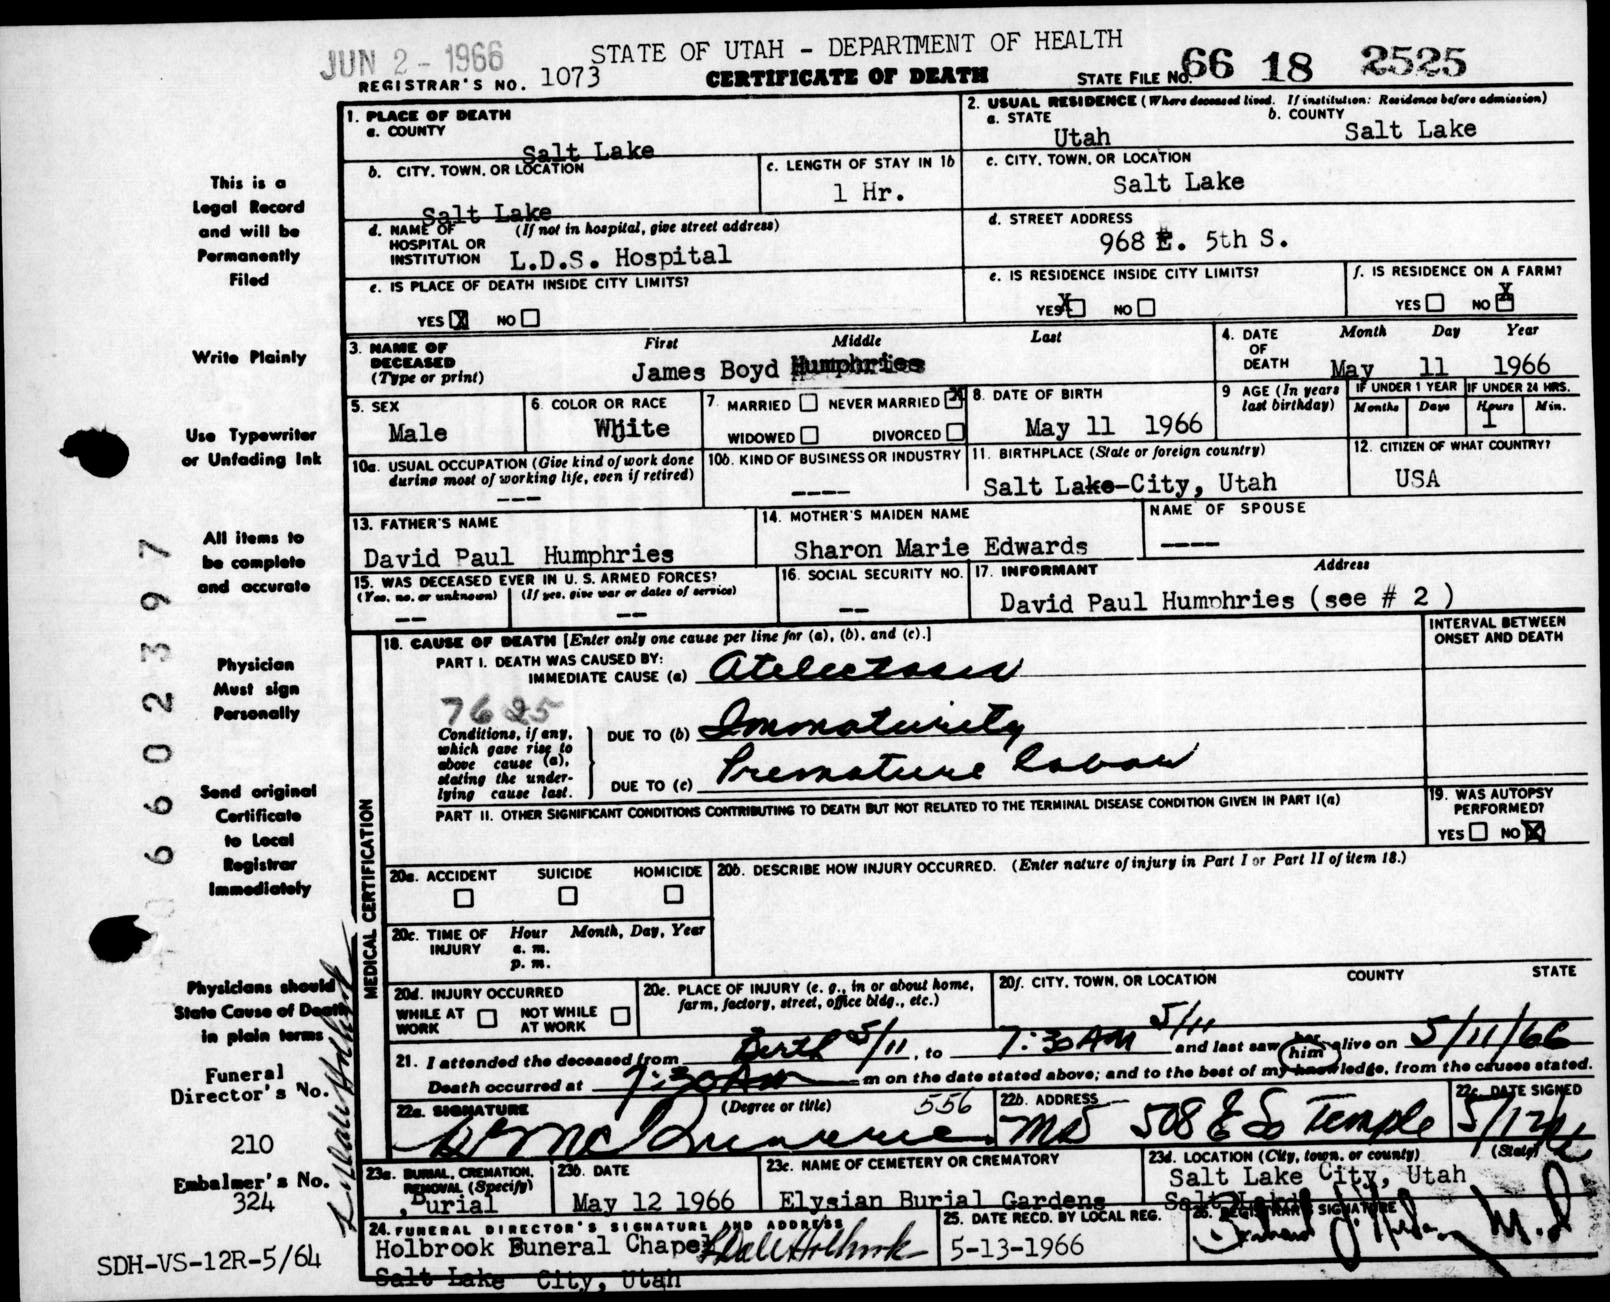 JUN 2 - 1966
STATE OF UTAH - DEPARTMENT OF HEALTH
REGISTRAR'S NO. 1073
CERTIFICATE OF DEATH
STATE FILE NO. 66 18 2525
1. PLACE OF DEATH
a. COUNTY
Salt Lake
2. USUAL RESIDENCE (Where deceased lived. If institution: Residence before admission)
a. STATE
Utah
b. COUNTY
Salt Lake
b. CITY, TOWN, OR LOCATION
Salt Lake
c. LENGTH OF STAY IN 1b
1 Hr.
c. CITY, TOWN, OR LOCATION
Salt Lake
d. NAME OF HOSPITAL OR INSTITUTION
(If not in hospital, give street address)
L.D.S. Hospital
d. STREET ADDRESS
968 E. 5th S.
e. IS PLACE OF DEATH INSIDE CITY LIMITS?
YES X NO
e. IS RESIDENCE INSIDE CITY LIMITS?
YES X NO
f. IS RESIDENCE ON A FARM?
YES NO X
3. NAME OF DECEASED
(Type or print)
First Middle Last
James Boyd Humphries
4. DATE OF DEATH
Month Day Year
May 11 1966
5. SEX
Male
6. COLOR OR RACE
White
7. MARRIED NEVER MARRIED X
WIDOWED DIVORCED
8. DATE OF BIRTH
May 11 1966
9 AGE (In years last birthday)
IF UNDER 1 YEAR
Months Days
IF UNDER 24 HRS.
Hours Min.
1
10a. USUAL OCCUPATION (Give kind of work done during most of working life, even if retired)
---
10b. KIND OF BUSINESS OR INDUSTRY
----
11. BIRTHPLACE (State or foreign country)
Salt Lake City, Utah
12. CITIZEN OF WHAT COUNTRY?
USA
13. FATHER'S NAME
David Paul Humphries
14. MOTHER'S MAIDEN NAME
Sharon Marie Edwards
NAME OF SPOUSE
----
15. WAS DECEASED EVER IN U. S. ARMED FORCES?
(Yes, no, or unknown) (If yes, give war or dates of service)
-- --
16. SOCIAL SECURITY NO.
--
17. INFORMANT Address
David Paul Humphries (see # 2 )
MEDICAL CERTIFICATION
18. CAUSE OF DEATH [Enter only one cause per line for (a), (b), and (c).]
INTERVAL BETWEEN ONSET AND DEATH
PART I. DEATH WAS CAUSED BY:
IMMEDIATE CAUSE (a) Atelectasis
7625
Conditions, if any, which gave rise to above cause (a), stating the underlying cause last.
DUE TO (b) Immaturity
DUE TO (c) Premature labor
PART II. OTHER SIGNIFICANT CONDITIONS CONTRIBUTING TO DEATH BUT NOT RELATED TO THE TERMINAL DISEASE CONDITION GIVEN IN PART I(a)
19. WAS AUTOPSY PERFORMED?
YES NO X
20a. ACCIDENT SUICIDE HOMICIDE
20b. DESCRIBE HOW INJURY OCCURRED. (Enter nature of injury in Part I or Part II of item 18.)
20c. TIME OF INJURY
Hour Month, Day, Year
a. m.
p. m.
20d. INJURY OCCURRED
WHILE AT WORK NOT WHILE AT WORK
20e. PLACE OF INJURY (e. g., in or about home, farm, factory, street, office bldg., etc.)
20f. CITY, TOWN, OR LOCATION COUNTY STATE
21. I attended the deceased from Birth 5/11, to 7:30 AM 5/11 and last saw her him alive on 5/11/66
Death occurred at 7:30 AM m on the date stated above; and to the best of my knowledge, from the causes stated.
22a. SIGNATURE (Degree or title) 556
22b. ADDRESS
MD 508 E So Temple
22c. DATE SIGNED
5/12/66
23a. BURIAL, CREMATION, REMOVAL (Specify)
Burial
23b. DATE
May 12 1966
23c. NAME OF CEMETERY OR CREMATORY
Elysian Burial Gardens
23d. LOCATION (City, town, or county) (State)
Salt Lake City, Utah
24. FUNERAL DIRECTOR'S SIGNATURE AND ADDRESS
Holbrook Funeral Chapel
L Dale Holbrook
Salt Lake City, Utah
25. DATE RECD. BY LOCAL REG.
5-13-1966
26. REGISTRAR'S SIGNATURE
This is a
Legal Record
and will be
Permanently
Filed
Write Plainly
Use Typewriter
or Unfading Ink
All items to
be complete
and accurate
Physician
Must sign
Personally
Send original
Certificate
to Local
Registrar
Immediately
Physicians should
State Cause of Death
in plain terms
Funeral
Director's No.
210
Embalmer's No.
324
L Dale Holbrook
SDH-VS-12R-5/64
6602397